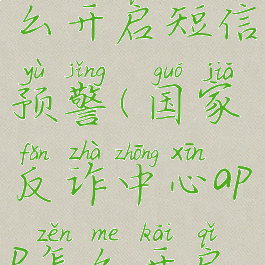 么开启短信
yù jǐng guó jiā
预警(国家
fǎn zhà zhōng xīn
反诈中心ap
zěn me kāi qǐ
p怎么开启